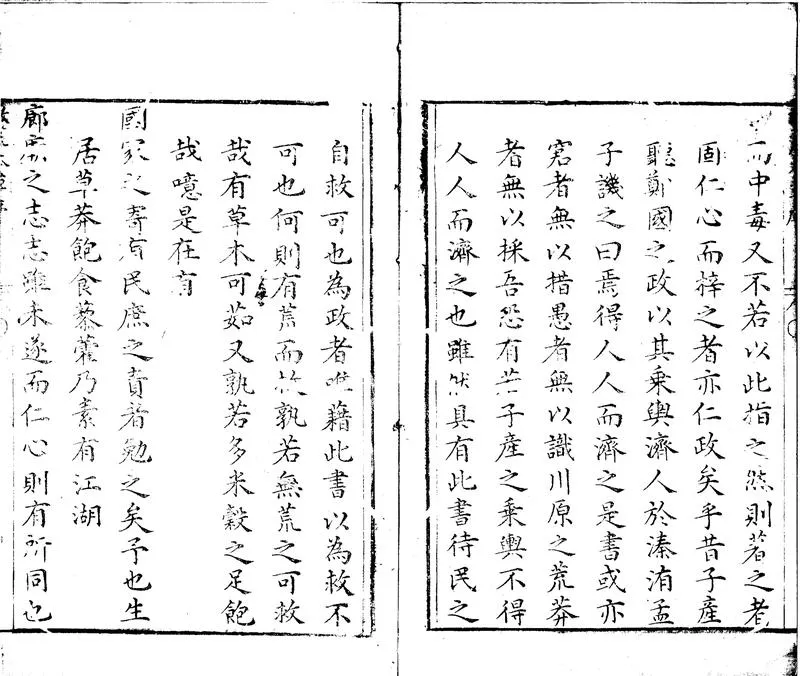 而中毒又不若以此指之然則著之者
固仁心而梓之者亦仁政矣乎昔子產
聽鄭國之政以其乘輿濟人於溱洧孟
子譏之曰焉得人人而濟之是書或亦
窘者無以措愚者無以識川原之荒莽
者無以採吾恐有若子產之乘輿不得
人人而濟之也雖然具有此書待民之
自救可也為政者唯藉此書以為救不
可也何則有荒而救孰若無荒之可救
哉有草木可茹又孰若多米穀之足飽
哉噫是在有
國家之寄有民庶之責者勉之矣予也生
居草莽飽食藜藿乃素有江湖
廊廟之志志雖未遂而仁心則有所同也